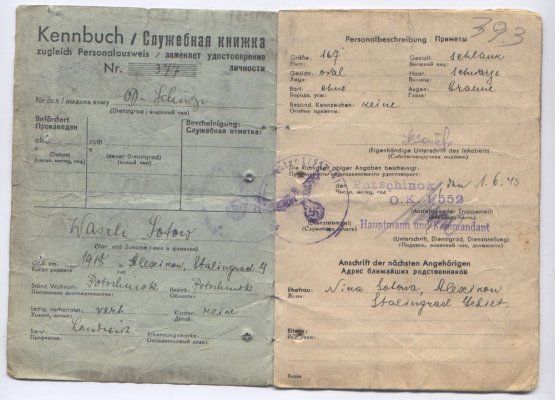 Kennbuch / Служебная книжка
zugleich Personalausweis / заменяет удостоверение
Nr. 377 личности
für den / выдана кому O.D. Schütze
(Dienstgrad / воинский чин)
Befördert
Произведен
ab zum
(Datum) (neuer Dienstgrad)
(число, месяц, год) (новый чин)
Bescheinigung:
Служебная отметка:
Wasili Sotow
(Vor- und Zuname / имя и фамилия)
Geb. am 1918 in Alexikow, Stalingrad
Когда родился где
Ständ. Wohnort: Potschinok Bezirk: Potschinok
Постоянное местожительство: Область:
ledig, verheiratet: verh. Kinder: keine
Холост, женат: Детей:
Beruf: Landwirt Erkennungsmarke:
Профессия: Опознавательный знак:
393
Personalbeschreibung Приметы
Größe: 167 Gestalt: schlank
Рост: Внешний вид:
Gesicht: oval Haar: schwarze
Лицо: Волосы:
Bart: ohne Augen: braune
Борода, усы: Глаза:
Besond. Kennzeichen: keine
Особые приметы:
(Eigenhändige Unterschrift des Inhabers)
(Собственноручная подпись)
Die Richtigkeit obiger Angaben bescheinigt:
Правильность вышеозначенного удостоверяет:
Potschinok den 1.6.43
O.K. I/552
(Dienststempel)
(Служебная печать)
Hauptmann und Kommandant
(Unterschrift, Dienstgrad, Dienststellung)
(Подпись, воинский чин, должность)
Anschrift der nächsten Angehörigen
Адрес ближайших родственников
Ehefrau: Nina Sotowa, Alexikow
Жена: Stalingrad Gebiet.
Eltern:
Родители: